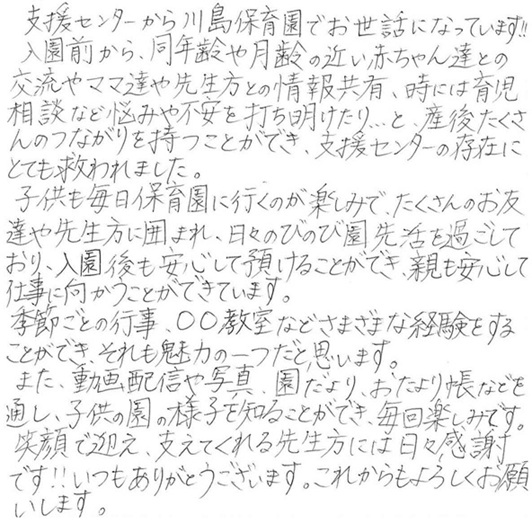 支援センターから川島保育園でお世話になっています!!
入園前から、同年齢や月齢の近い赤ちゃん達との
交流やママ達や先生方との情報共有、時には育児
相談など悩みや不安を打ち明けたり…と、産後たくさ
んのつながりを持つことができ、支援センターの存在に
とても救われました。
子供も毎日保育園に行くのが楽しみで、たくさんのお友
達や先生方に囲まれ、日々のびのび園先活を過ごして
おり、入園後も安心して預けることができ、親も安心して
仕事に向かうことができています。
季節ごとの行事、〇〇教室などさまざまな経験をする
ことができ、それも魅力の一つだと思います。
また、動画配信や写真、園だより、おたより帳などを
通し、子供の園の様子を知ることができ、毎回楽しみです。
笑顔で迎え、支えてくれる先生方には日々感謝
です!!いつもありがとうございます。これからもよろしくお願
いします。